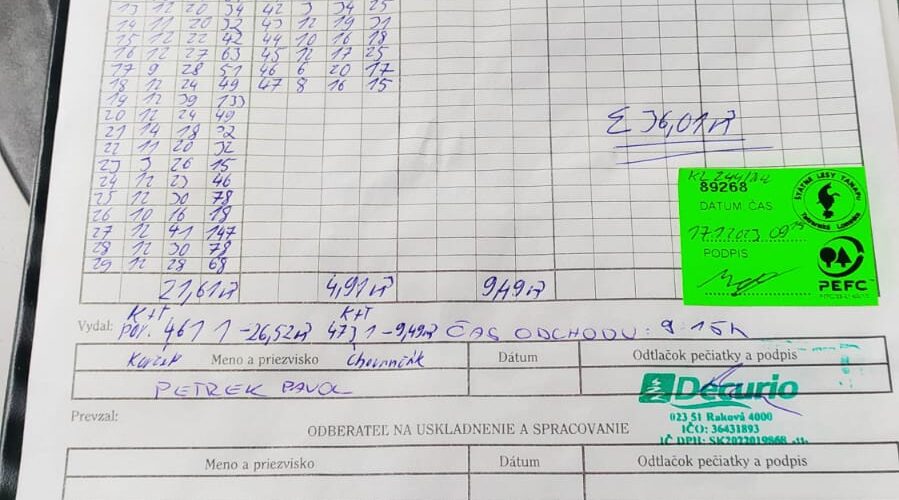 13 12 20 34 42 3 34 25
14 11 20 32 43 12 19 31
15 12 22 42 44 10 16 18
16 12 27 63 45 12 17 25
17 9 28 51 46 6 20 17
18 12 24 49 47 8 16 15
19 12 39 133
20 12 24 49
21 14 18 32
22 11 20 32
23 3 26 15
24 12 23 46
25 12 30 78
26 10 16 18
27 12 41 147
28 12 30 78
29 12 28 68
Σ 36,01 m³
89268
DATUM ČAS
17.1.2023 09
PODPIS
ŠTÁTNE LESY TANAPU
PEFC
21,61 m³ 4,91 m³ 9,49 m³
K+T K+T
Vydal: por. 461 1 - 26,52 m³ 473 1 - 9,49 m³ ČAS ODCHODU: 9:15h
Meno a priezvisko Dátum Odtlačok pečiatky a podpis
PETREK PAVOL
Decurio
023 51 Raková 4000
IČO: 36431893
IČ DPH: SK2022019868
Prevzal:
ODBERATEĽ NA USKLADNENIE A SPRACOVANIE
Meno a priezvisko Dátum Odtlačok pečiatky a podpis